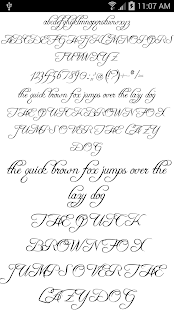 11:07 AM
abcdefghijklmnopqrstuvwxyz
ABCDEFGHIJKLMNOPQRS
TUVWXYZ
the quick brown fox jumps over the lazy dog
THE QUICK BROWN FOX
JUMPS OVER THE LAZY
DOG
the quick brown fox jumps over the
lazy dog
THE QUICK
BROWN FOX
JUMPS OVER THE
LAZY DOG